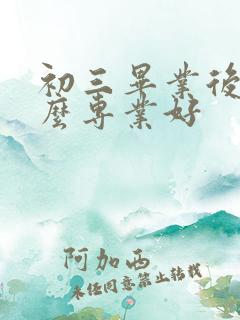 初三畢業後
麼專業好
阿加西
未经同意禁止转载